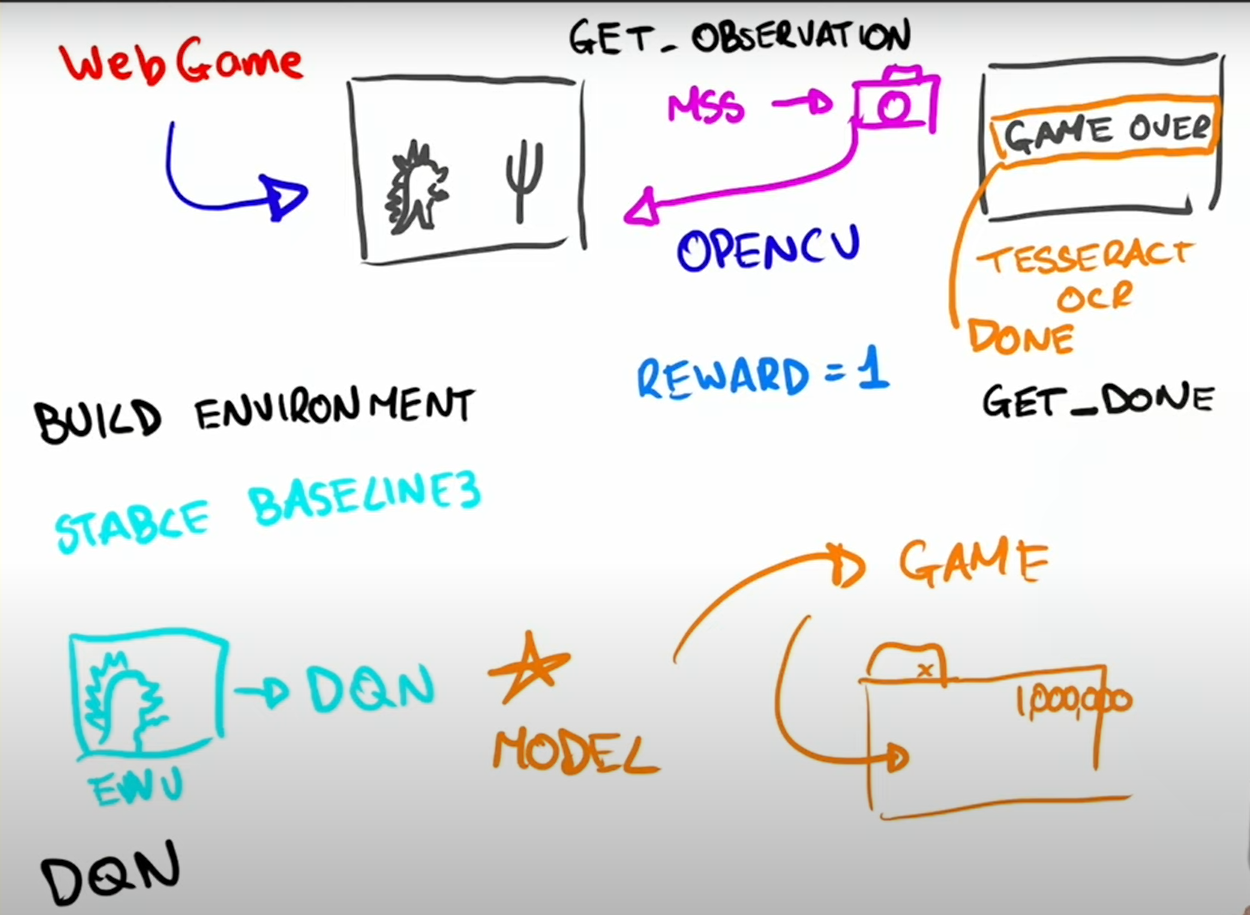 WebGame
GET_OBSERVATION
MSS
OPENCV
GAME OVER
TESSERACT
OCR
DONE
GET_DONE
REWARD = 1
BUILD ENVIRONMENT
STABLE BASELINE3
ENV
DQN
MODEL
GAME
x
1,000,000
DQN